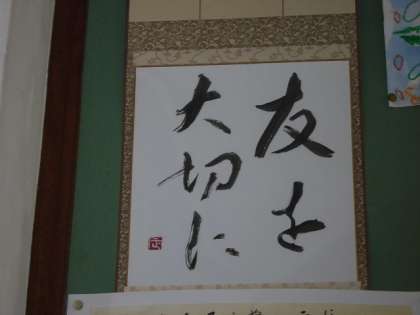 友を
大切に